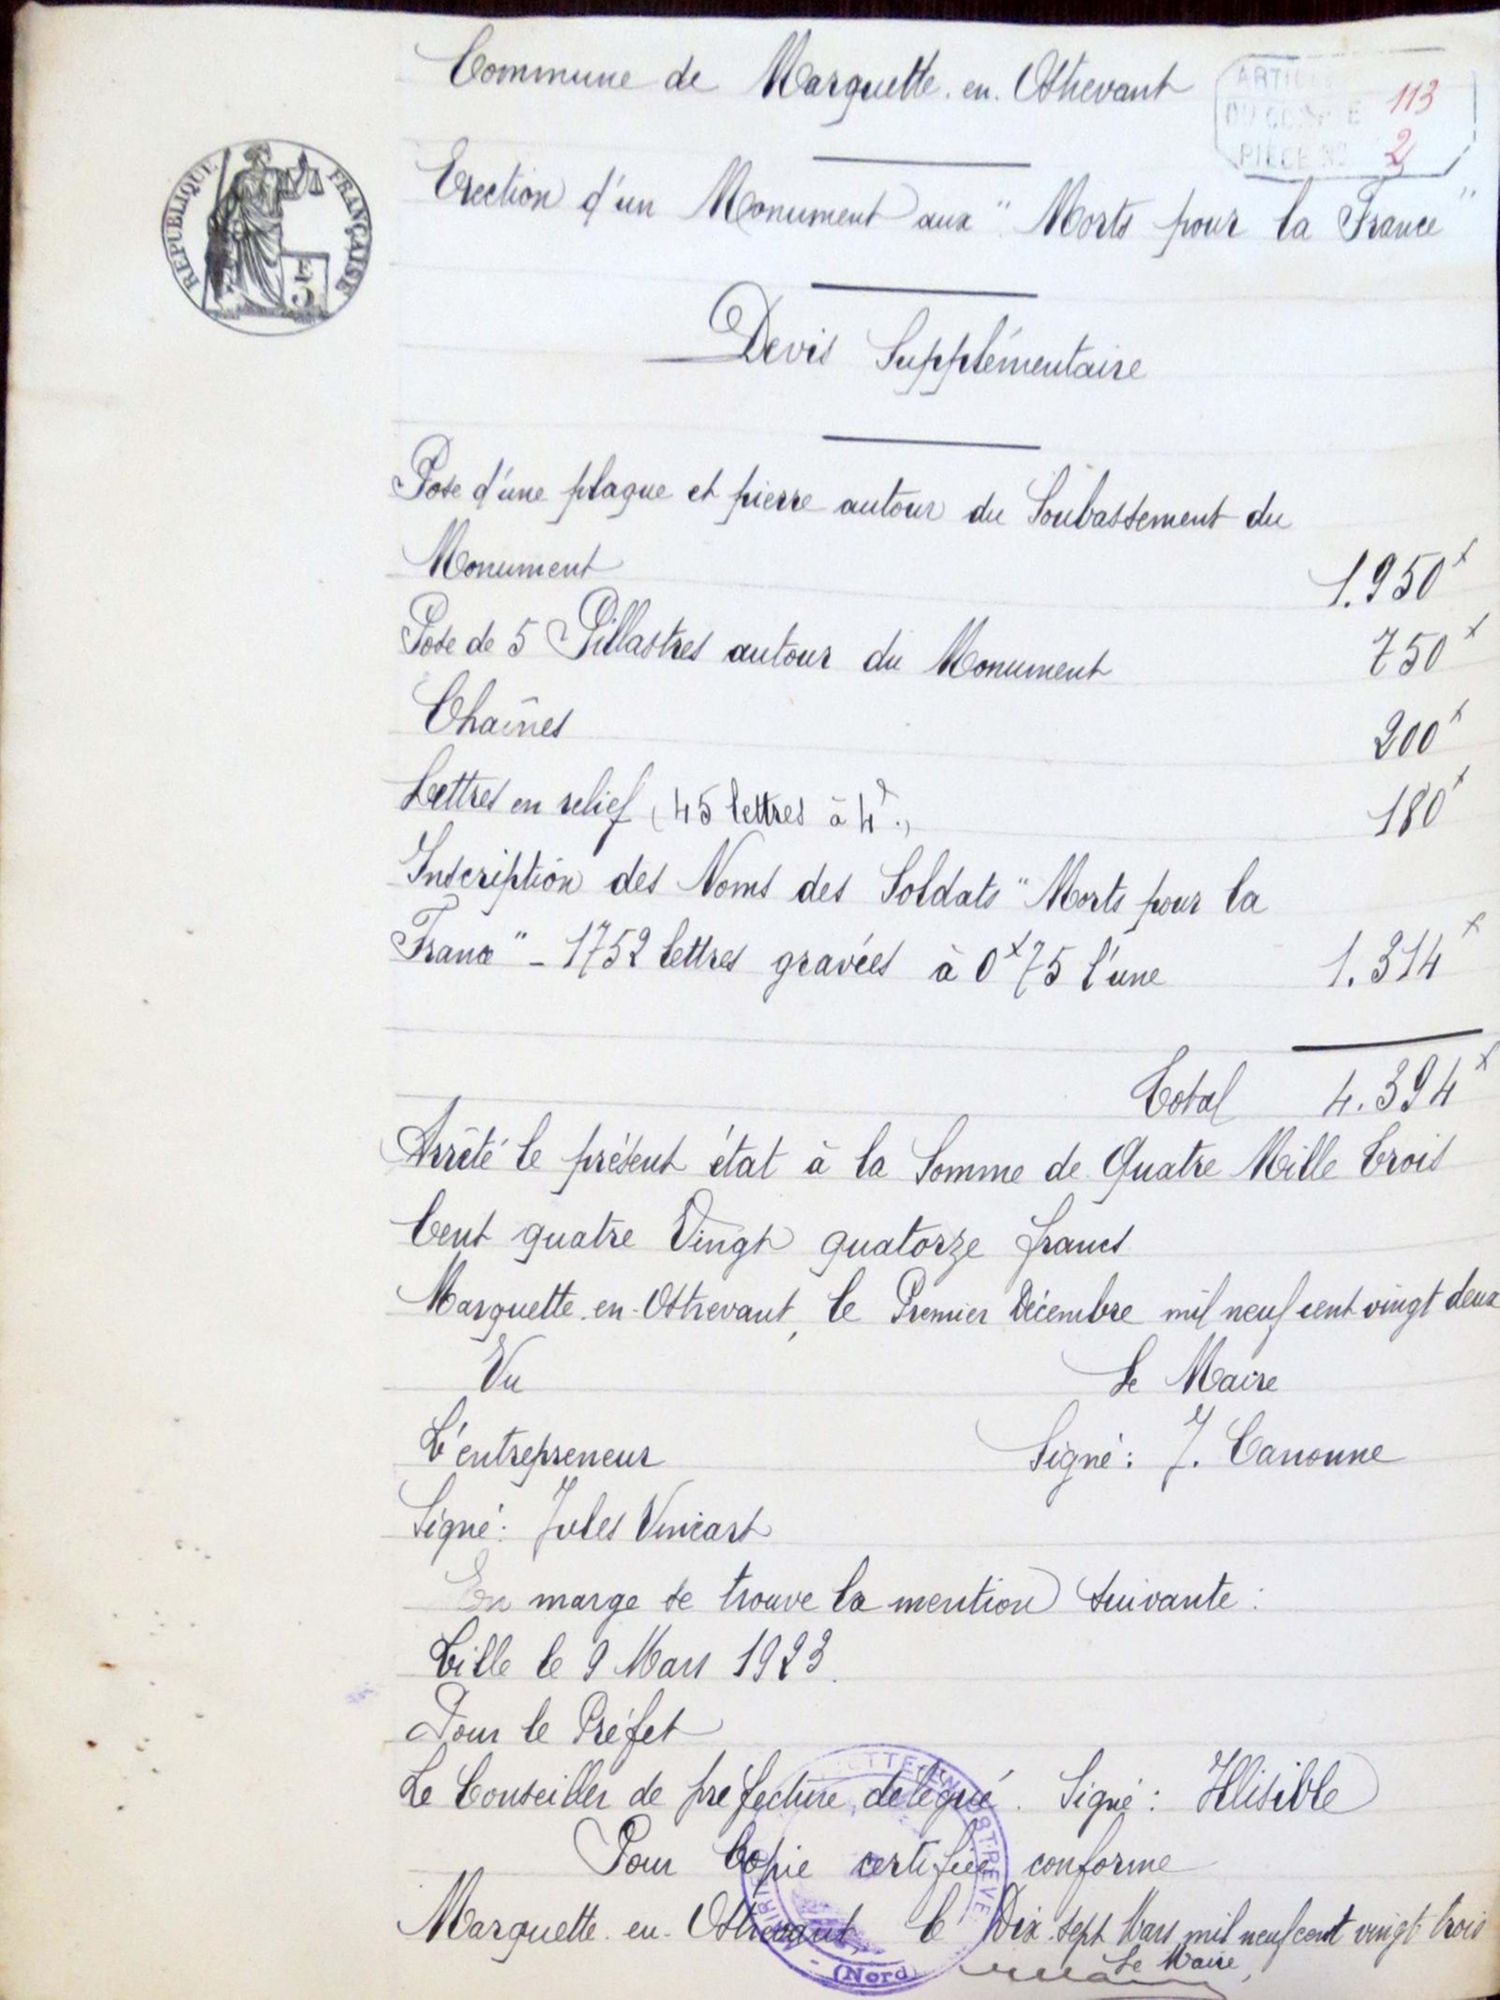 Commune de Marquette-en-Ostrevant
ARTICLE
DU COMPTE 113
PIECE No 2
REPUBLIQUE FRANÇAISE
Erection d'un Monument aux "Morts pour la France"
Devis Supplémentaire
Pose d'une plaque et pierre autour du Soubassement du
Monument 1.950f
Pose de 5 Pillastres autour du Monument 750f
Chaînes 200f
Lettres en relief (45 lettres à 4f.) 180f
Inscription des Noms des Soldats "Morts pour la
France" - 1752 lettres gravées à 0f75 l'une 1.314f
Total 4.394f
Arrêté le présent état à la Somme de Quatre Mille trois
Cent quatre Vingt quatorze francs
Marquette-en-Ostrevant, le Premier Décembre mil neuf cent vingt deux
Vu Le Maire
L'entrepreneur Signé: J. Canonne
Signé: Jules Vinicart
En marge se trouve la mention suivante:
Lille le 9 Mars 1923.
Pour le Préfet
Le Conseiller de préfecture, délégué. Signé: Illisible
Pour Copie certifiée conforme
Marquette-en-Ostrevant le Dix-sept Mars mil neuf cent vingt trois
Le Maire,
(Nord)